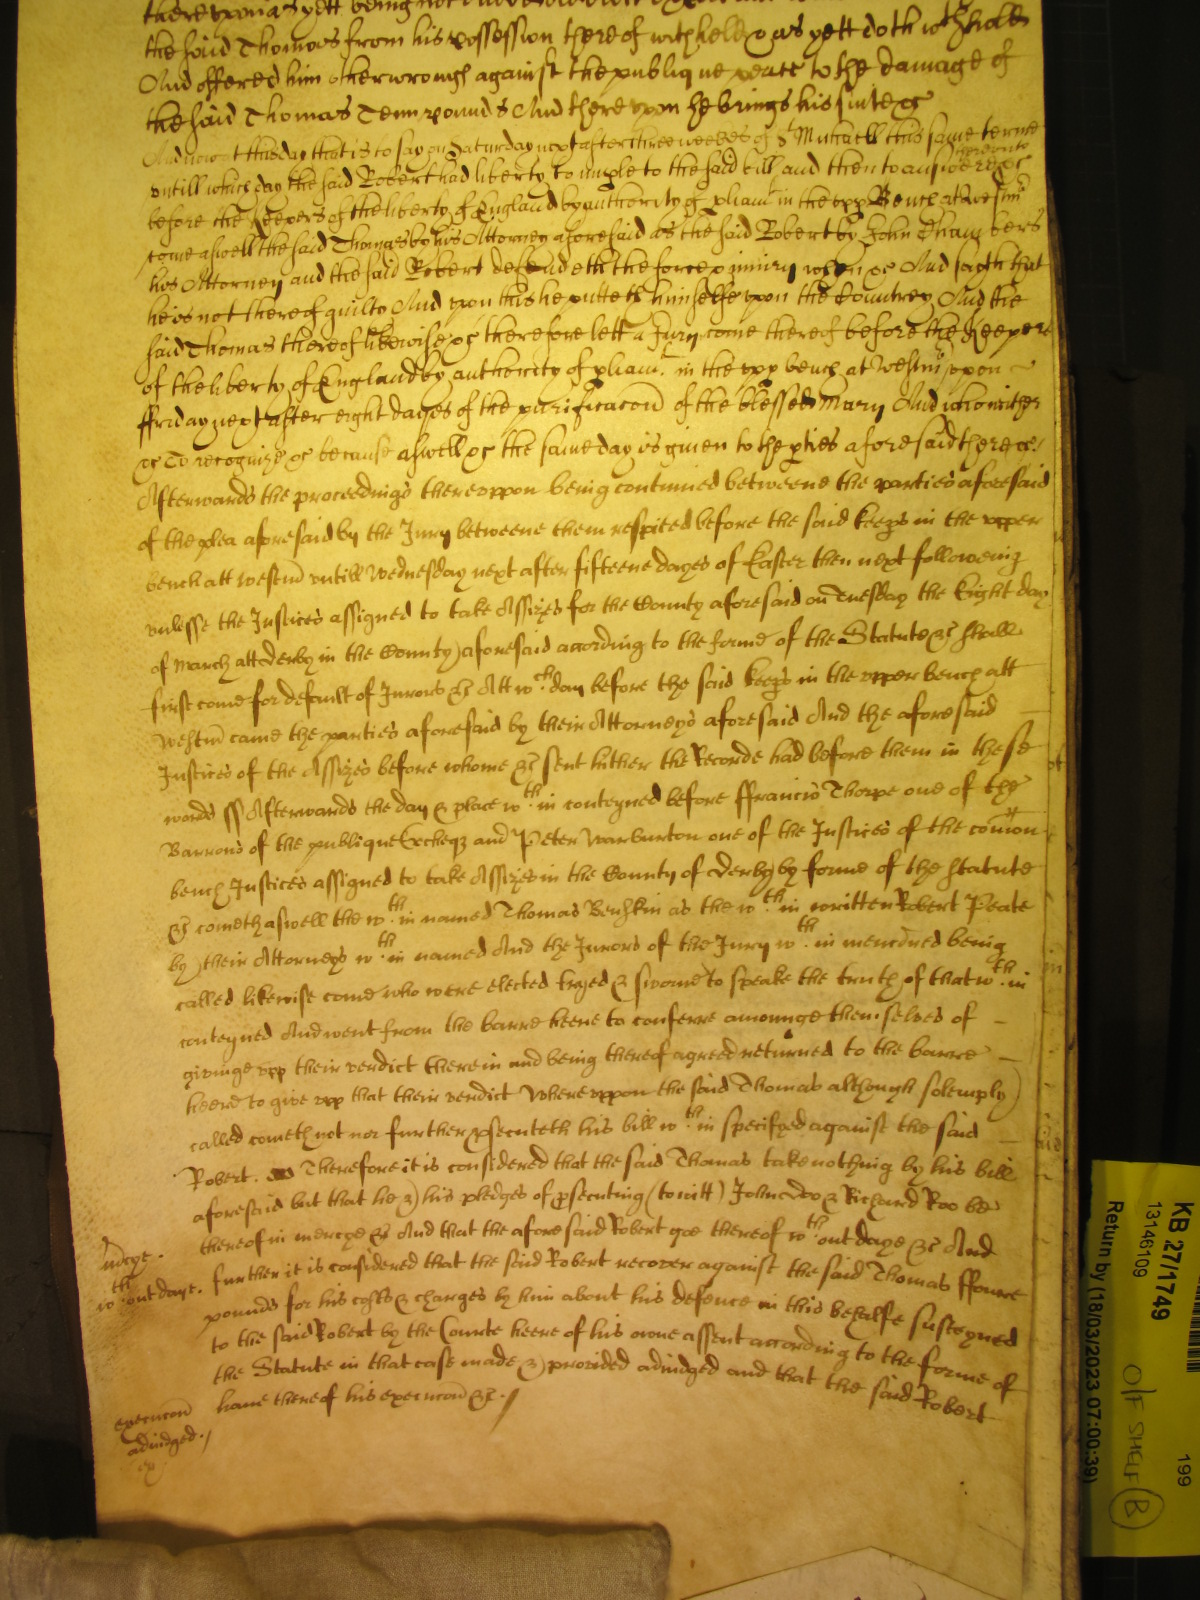 the said Thomas from his possession thereof withheld & as yett doth wthhold
And offered him other wrongs against the publique peace to the damage of
the said Thomas Tenn pounds And thereupon he brings his suite &c
And now at this day that is to say on Saturday next after three weekes of St Michaell this same terme
untill which day the said Robert had liberty to imple to the said bill and then to answere &c
before the Keepers of the liberty of England by authority of pliamt in the upp Bench at Westmr
come aswell the said Thomas by his Attorney aforesaid as the said Robert by John Chambers
his Attorney and the said Robert defendeth the force & iniury when &c And saith that
he is not thereof guilty And upon this he putteth himselfe upon the Countrey And the
said Thomas thereof likewise &c therefore lett a Jury come thereof before the Keepers
of the liberty of England by authority of pliamt in the upp bench at Westmr uppon
ffriday next after eight dayes of the purificacon of the blessed Mary And who neither
&c To recognize &c because aswell &c the same day is given to the pties aforesaid there &c
Afterwards the proceedings thereuppon being continued betweene the parties aforesaid
of the plea aforesaid by the Jury betweene them respited before the said keeps in the upper
bench att westm untill Wednesday next after fifteene dayes of Easter then next following
unlesse the Justices assigned to take Assizes for the County aforesaid on Tuesday the Eight day
of March att Derby in the County aforesaid according to the forme of the Statute &c shall
first come for default of Jurors &c Att wch day before the said keeps in the upper bench att
Westm came the parties aforesaid by their Attorneys aforesaid And the aforesaid
Justices of the Assizes before whome &c sent hither the Recorde had before them in these
words ss Afterwards the day & place wthin conteyned before ffrancis Thorpe one of the
Barrons of the publique Excheqr and Peter Warburton one of the Justices of the comon
bench Justices assigned to take Assizes in the County of Derby by forme of the statute
&c cometh aswell the wthin named Thomas Benskin as the wthin written Robert Peate
by their Attorneys wthin named And the Jurors of the Jury wthin menconed being
called likewise come who were elected tryed & sworne to speake the truth of that wthin
conteyned And went from the barre heere to conferre amounge themselves of
givinge upp their verdict therein and being thereof agreed returned to the barre
heere to give upp that their verdict Whereuppon the said Thomas although solemply
called cometh not nor further psecuteth his bill wthin specifyed against the said
Robert. Therefore it is considered that the said Thomas take nothing by his bill
aforesaid but that he & his pledges of psecuting (to witt) John Doo & Richard Roo be
thereof in mercye &c And that the aforesaid Robert goe thereof wthout daye &c And
mcye.
wthout daye.
further it is considered that the said Robert recover against the said Thomas ffoure
pounds for his costs & charges by him about his defence in this behalfe susteyned
to the said Robert by the Courte heere of his owne assent according to the forme of
the Statute in that case made & provided adiudged and that the said Robert
have thereof his execucon &c.
execucon
adiudged.
KB 27/1749
13146109
199
Return by (18/03/2023 07:00:39)
O/F SHELF B